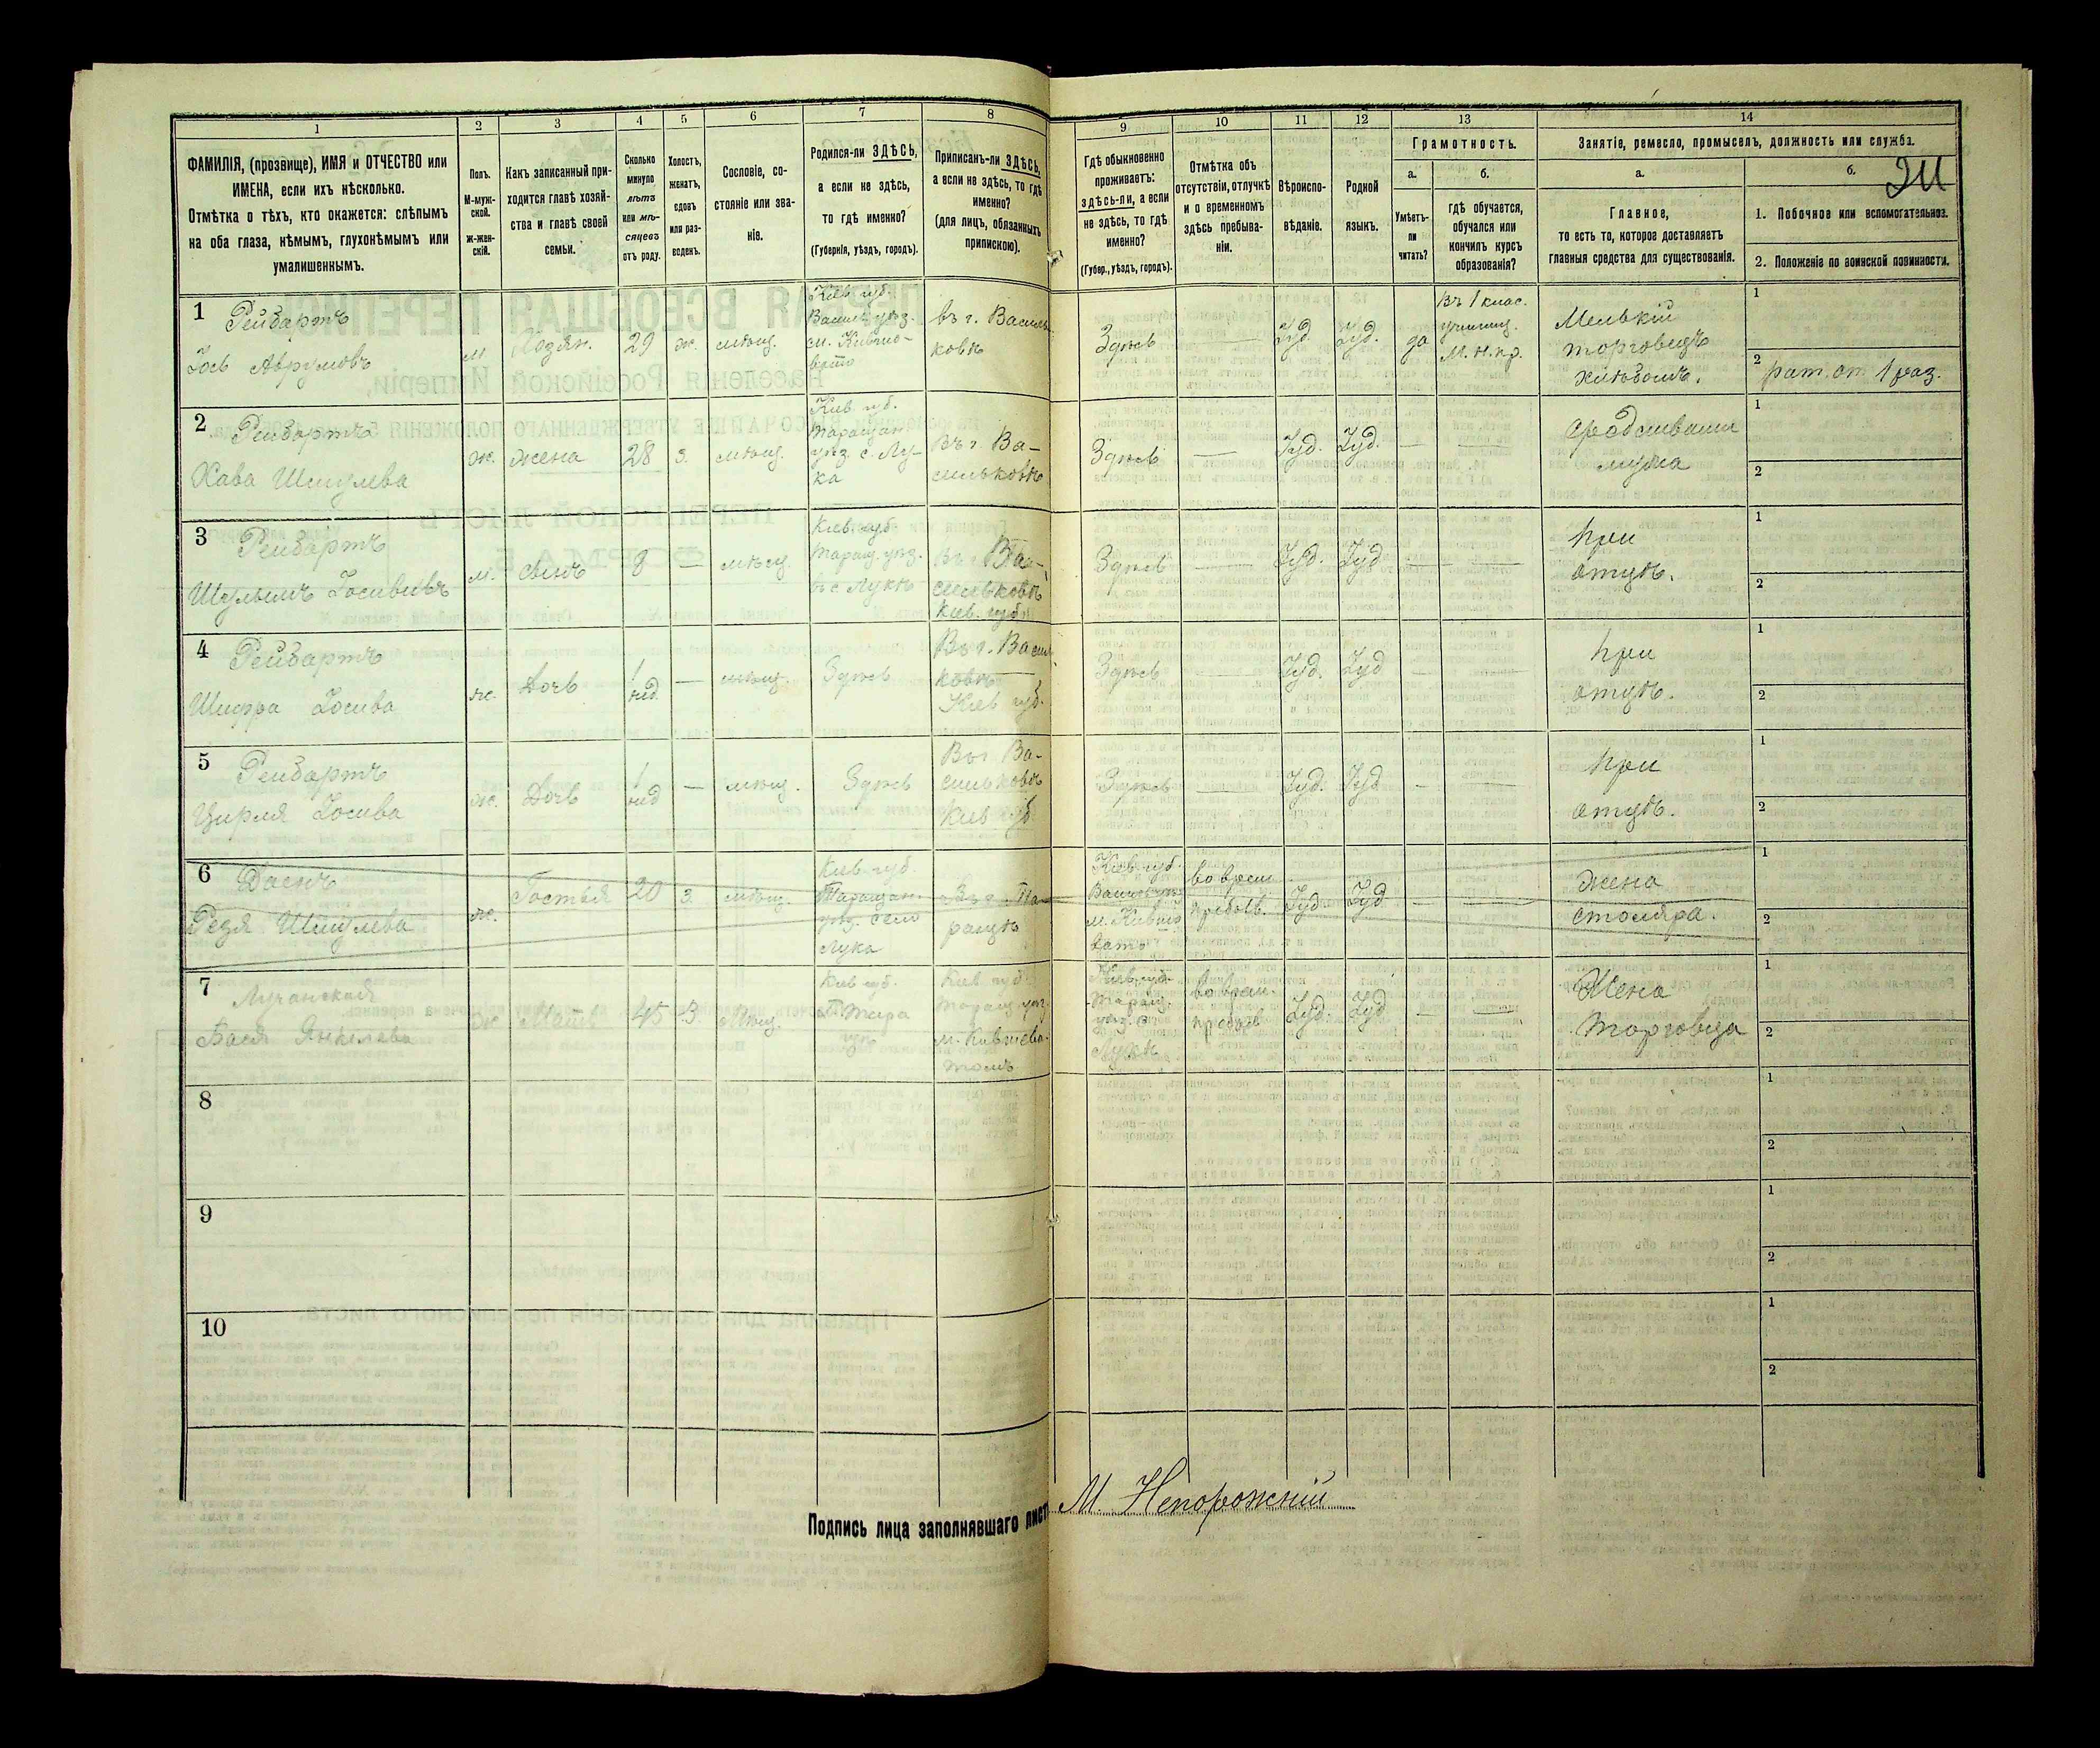 1 2 3 4 5 6 7 8 9 10 11 12 13 14
ФАМИЛІЯ, (прозвище), ИМЯ и ОТЧЕСТВО или
ИМЕНА, если ихъ нѣсколько.
Отмѣтка о тѣхъ, кто окажется: слѣпымъ
на оба глаза, нѣмымъ, глухонѣмымъ или
умалишеннымъ.
Полъ.
М-муж-
ской.
Ж-жен-
скій.
Какъ записанный при-
ходится главѣ хозяй-
ства и главѣ своей
семьи.
Сколько
минуло
лѣтъ
или мѣ-
сяцевъ
отъ роду.
Холостъ,
женатъ,
вдовъ
или раз-
веденъ.
Сословіе, со-
стояніе или зва-
ніе.
Родился-ли ЗДѢСЬ,
а если не здѣсь,
то гдѣ именно?
(Губернія, уѣздъ, городъ).
Приписанъ-ли ЗДѢСЬ,
а если не здѣсь, то гдѣ
именно?
(для лицъ, обязанныхъ
припискою).
Гдѣ обыкновенно
проживаетъ:
здѣсь-ли, а если
не здѣсь, то гдѣ
именно?
(Губер., уѣздъ, городъ).
Отмѣтка объ
отсутствіи, отлучкѣ
и о временномъ
здѣсь пребыва-
ніи.
Вѣроиспо-
вѣданіе.
Родной
языкъ.
Грамотность.
а.
Умѣетъ-
ли
читать?
б.
гдѣ обучается,
обучался или
кончилъ курсъ
образованія?
Занятіе, ремесло, промыселъ, должность или служба.
а.
Главное,
то есть то, которое доставляетъ
главныя средства для существованія.
б.
1. Побочное или вспомогательное.
2. Положеніе по воинской повинности.
1
Рейбартъ
Іось Аврумовъ
м
Хозяин.
29
ж.
мѣщ.
Кіев. губ.
Васильк. уѣз.
въ г. Василь-
ковѣ
Здѣсь
Іуд.
Іуд.
да
Въ 1 клас.
училищ.
М. н. пр.
Мелькій
торговецъ
хлѣбомъ.
1
2 рат. оп. 1 раз.
2
Рейбартъ
Хава Шмулева
ж.
жена
28
з.
мѣщ.
Кіев. губ.
Таращан
уѣз. с. Лу-
ка
Въ г. Ва-
сильковѣ
Здѣсь
Іуд.
Іуд.
средствами
мужа
1
2
3
Рейбартъ
м.
сынъ
8
мѣщ.
Кіев. губ.
Таращ. уѣз.
въ с. Лукѣ
Въ г. Ва-
сильковѣ
Кіев. губ.
Здѣсь
Іуд.
Іуд
при
отцѣ.
1
2
4
Рейбартъ
Шифра Іосива
ж.
Дочь
1
мѣщ.
Здѣсь
Въ г. Василь-
ковѣ
Кіев губ.
Здѣсь
Іуд.
Іуд
при
отцѣ.
1
2
5
Рейбартъ
Цирля Іосива
ж.
Дочь
1
мѣщ.
Здѣсь
Въ г. Ва-
сильковѣ
Кіев губ.
Здѣсь
Іуд.
Іуд
при
отцѣ.
1
2
6
Шмулева
ж.
Гостья
20
з.
мѣщ.
Кіев. губ.
Таращан.
уѣз. село
Лука
Кіев. губ.
во врем.
пребыв.
Іуд.
Іуд
жена
столяра.
1
2
7
Лучанская
Бася Янкелева
ж
Мать
45
З.
Мѣщ.
Кіев губ.
Кіев губ
Таращ уѣз
Кіев. губ
Таращ.
уѣз. с.
Лука
во врем.
пребыв
Іуд.
Іуд.
Жена
Торговца
1
2
8
1
2
9
1
2
10
1
2
Подпись лица заполнявшаго лист
М. Непорожній